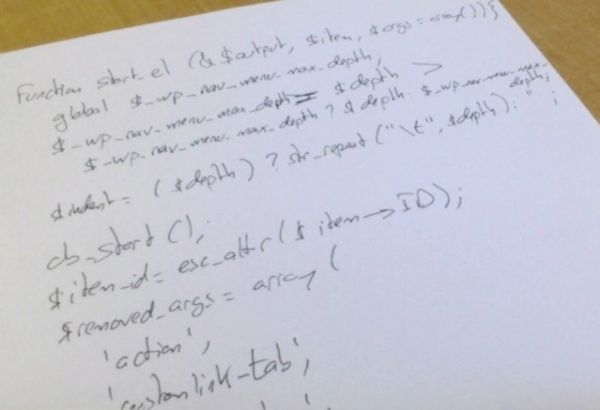 Function start_el (&$output, $item, $args = array()){
global $_wp_nav_menu_max_depth;
$_wp_nav_menu_max_depth = $depth >
$_wp_nav_menu_max_depth ? $depth : $_wp_nav_menu_max_depth;
$indent = ($depth) ? str_repeat("\t", $depth) : '' ;
ob_start();
$item_id = esc_attr($item->ID);
$removed_args = array(
'action',
'customlink-tab',